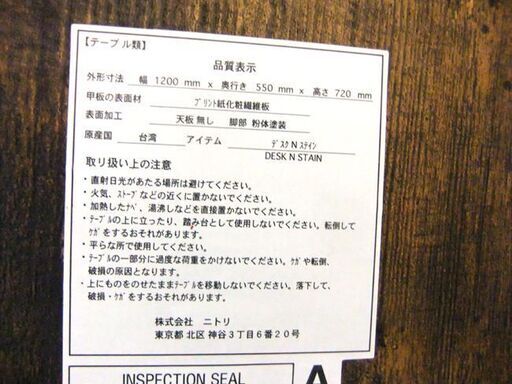 【テーブル類】
品質表示
外形寸法 幅 1200 mm x 奥行き 550 mm x 高さ 720 mm
甲板の表面材 プリント紙化粧繊維板
表面加工 天板 無し 脚部 粉体塗装
原産国 台湾 アイテム デスク N ステイン
DESK N STAIN
取り扱い上の注意
・直射日光があたる場所は避けてください。
・火気、ストーブなどの近くに置かないでください。
・加熱したナベ、湯沸しなどを直接置かないでください。
・テーブルの上に立ったり、踏み台として使用しないでください。転倒して
ケガをするおそれがあります。
・平らな所で使用してください。
・テーブルの一部分に過度な荷重をかけないでください。ケガや転倒、
破損の原因となります。
・上にものをのせたままテーブルを移動しないでください。落下して、
破損・ケガをするおそれがあります。
株式会社 ニトリ
東京都 北区 神谷3丁目6番20号
INSPECTION SEAL A